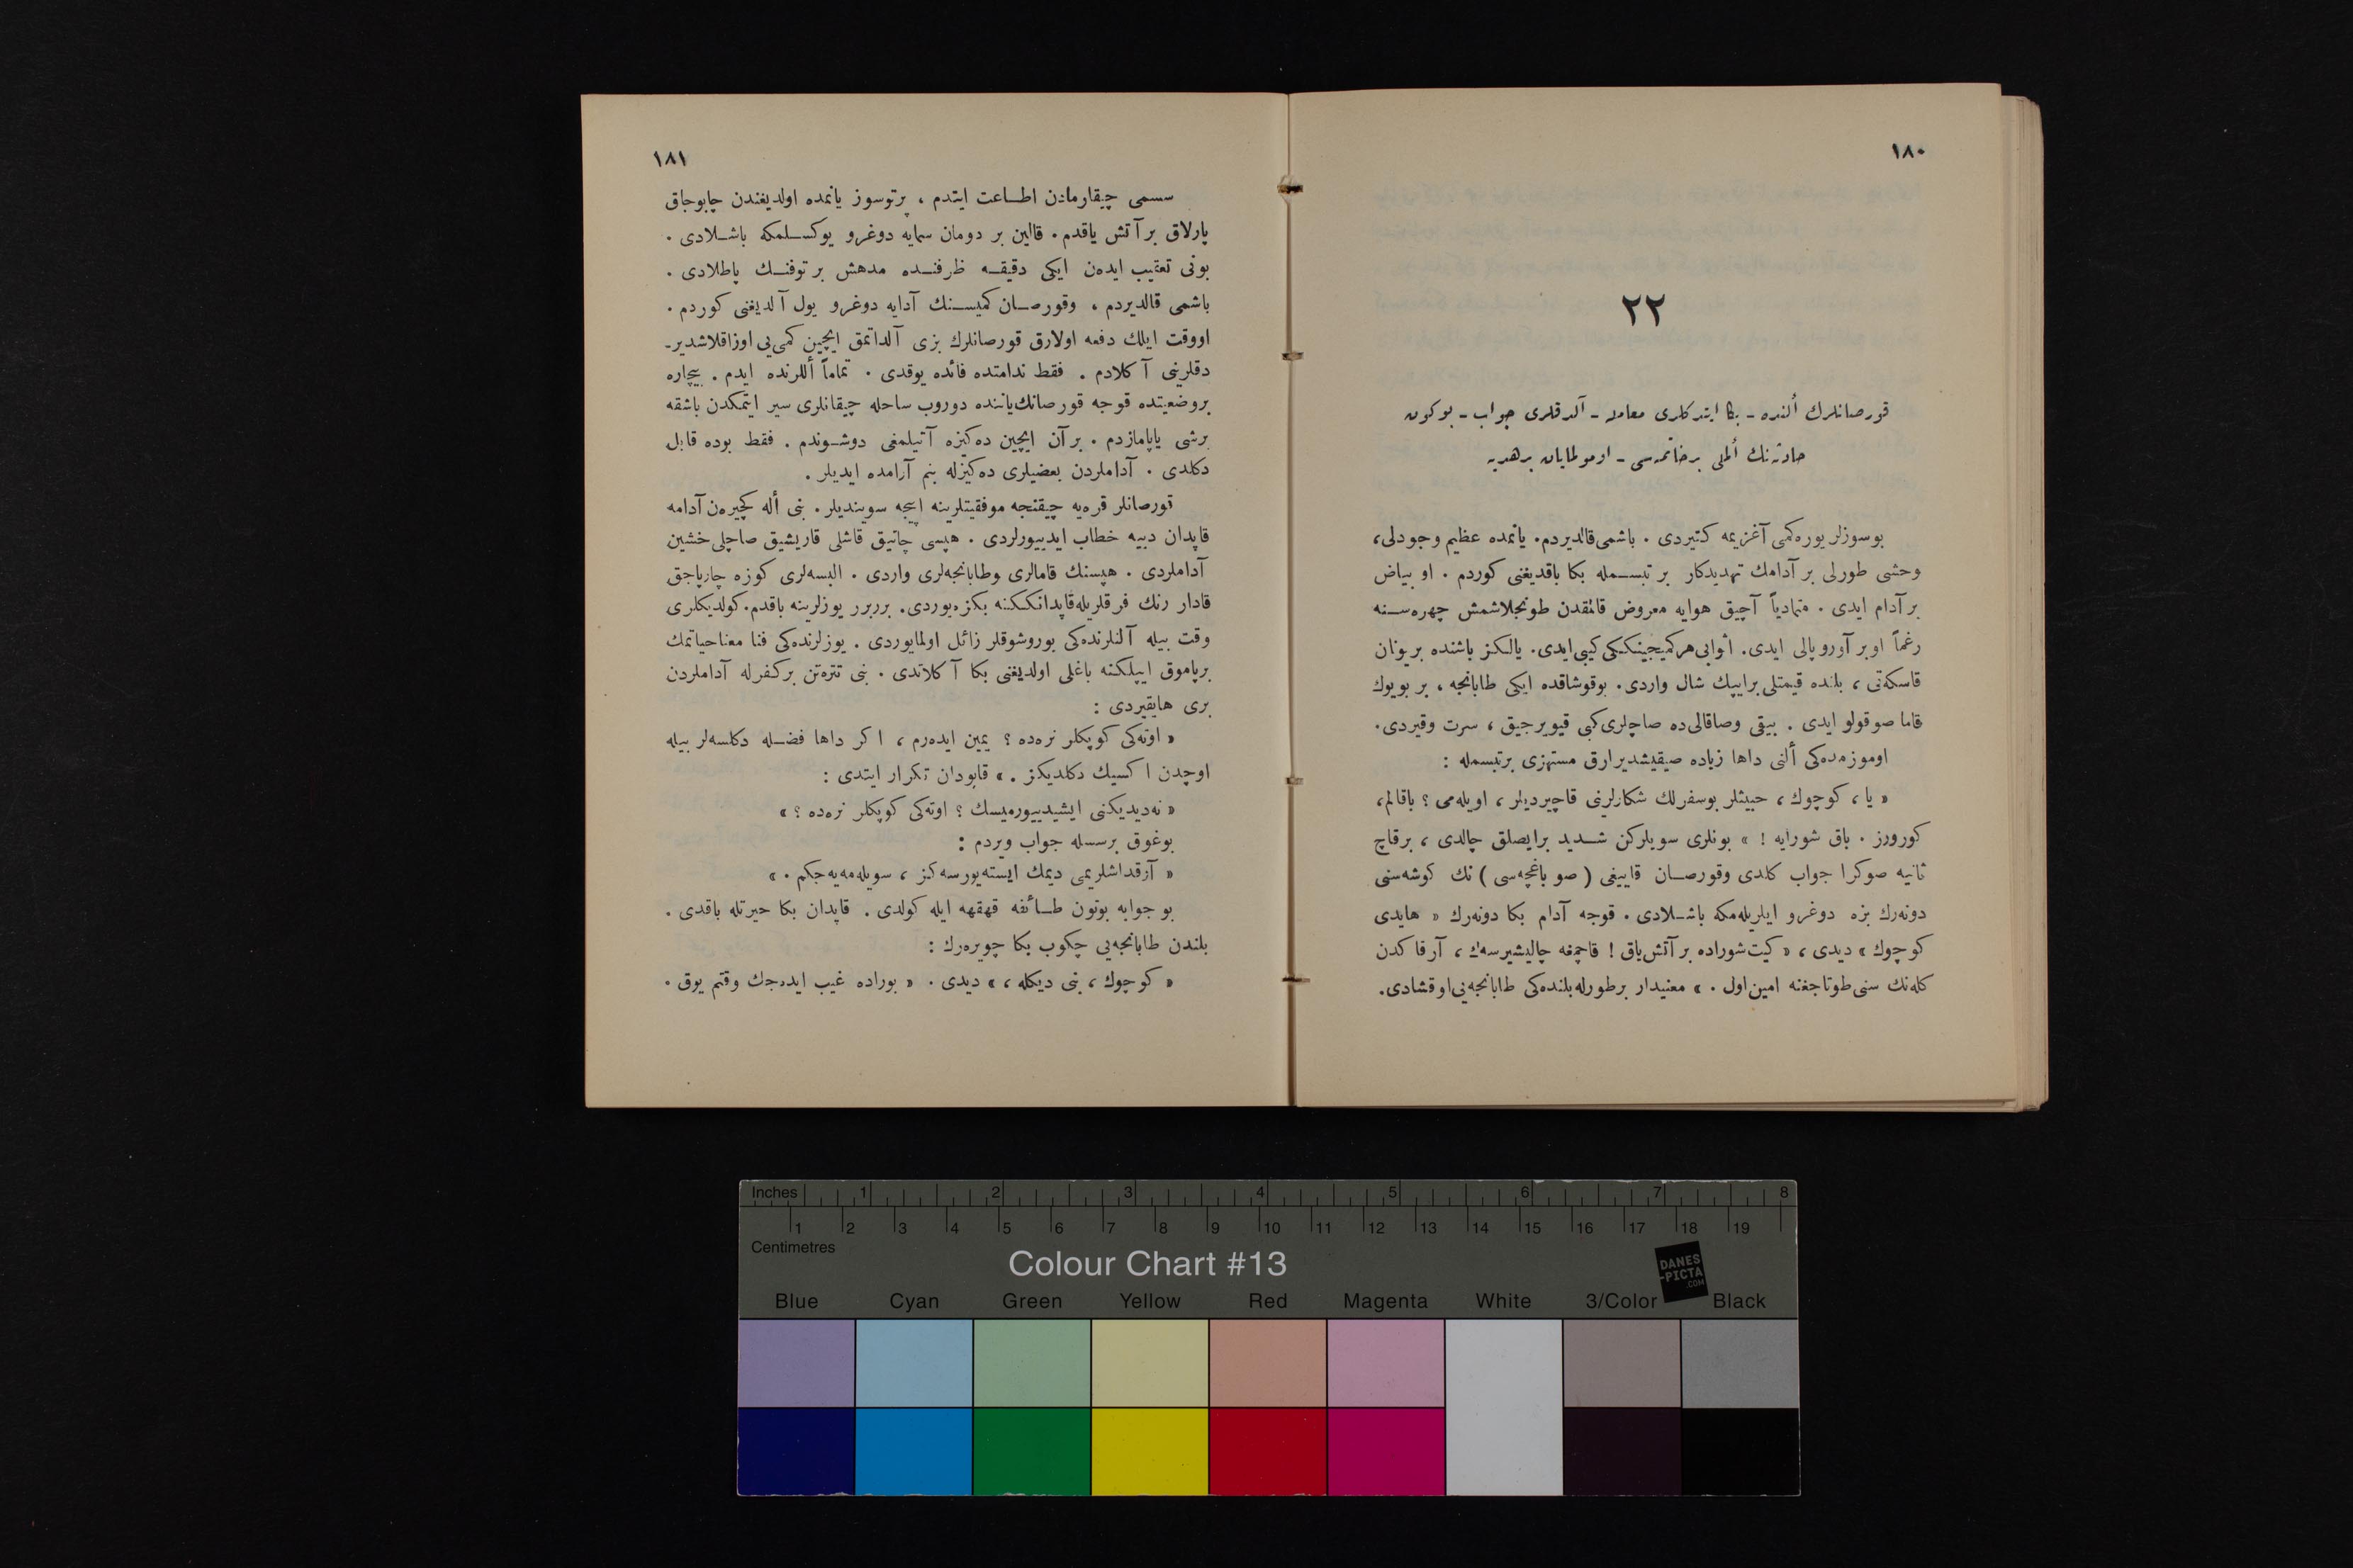 ١٨٠
٢٢
قورصانلرك ألنده ـ بكا ایتدكلری معامله ـ آلدقلری جواب ـ بوكون
حادثه‌نك ألملی برخاتمه‌سی ـ اومولمایان برهدیه
بوسوزلر یوره‌كمی آغزیمه كتیردی . باشمی قالدیردم. یانمده عظیم وجودلی،
وحشی طورلی بر آدامك تهدیدكار بر تبسـمله بكا باقدیغنی كوردم . او بیاض
بر آدام ایدی . متمادیاً آچیق هوایه معروض قالمقدن طونجلاشمش چهره‌سـنه
رغماً او بر آوروپالی ایدی. اثوابی هر كمیجینككی كیبی ایدی. یالكز باشنده بر یونان
قاسكه‌تی ، بلنده قیمتلی بر ایپك شال واردی. بوقوشاقده ایكی طابانجه ، بر بویوك
قاما صوقولو ایدی . بیقی وصاقالی ده صاچلری كبی قیویرجیق ، سرت وقیردی.
اوموزمده‌كی ألنی داها زیاده صیقیشدیرارق مستهزی برتبسمله :
« یا ، كوچوك ، خبیثلر بوسفرلك شكارلرنی قاچیردیلر ، اویله‌می ؟ باقالم،
كورورز . باق شورایه ! » بونلری سویلركن شـدید برایصلق چالدی ، برقاچ
ثانیه صوكرا جواب كلدی وقورصـان قاییغی ( صو باغچه‌سی ) نك كوشه‌سنی
دونه‌رك بزه دوغرو ایلریله‌مكه باشـلادی . قوجه آدام بكا دونه‌رك « هایدی
كوچوك » دیدی ، « كیت شوراده بر آتش یاق ! قاچمغه چالیشیرسه‌ك ، آرقاكدن
كله‌نك سنی طوتاجغنه امین اول . » معنیدار برطورله بلنده‌كی طابانجه‌یی اوقشادی.
١٨١
سسمی چیقارمادن اطـاعت ایتدم ، پرتوسوز یانمده اولدیغندن چابوجاق
پارلاق بر آتش یاقدم . قالین بر دومان سمایه دوغرو یوكسـلمكه باشـلادی .
بونی تعقیب ایده‌ن ایكی دقیقـه ظرفنـده مدهش بر توفنـك پاطلادی .
باشمی قالدیردم ، وقورصـان كمیسـنك آدایه دوغرو یول آلدیغنی كوردم .
اووقت ایلك دفعه اولارق قورصانلرك بزی آلداتمق ایچین كمی‌یی اوزاقلاشدیرـ
دقلرینی آكلادم . فقط ندامتده فائده یوقدی . تماماً أللرنده ایدم . بیچاره
بروضعیتده قوجه قورصانك یاننده دوروب ساحله چیقانلری سیر ایتمكدن باشقه
برشی یاپامازدم . بر آن ایچین ده‌كیزه آتیلمغی دوشـوندم . فقط بوده قابل
دكلدی . آداملردن بعضیلری ده‌كیزله بنم آرامده ایدیلر .
قورصانلر قره‌یه چیقنجه موفقیتلرینه اییجه سویندیلر . بنی أله كچیره‌ن آدامه
قاپدان دییه خطاب ایدییورلردی . هپسی چاتیق قاشلی قاریشیق صاچلی خشین
آداملردی . هپسنك قامالری وطابانجه‌لری واردی . البسه‌لری كوزه چارپاجق
قادار رنك فرقلریله قاپدانككنه بكزه‌یوردی. برربرر یوزلرینه باقدم. كولدیكلری
وقت بیله آلنلرنده‌كی بوروشوقلر زائل اولمایوردی . یوزلرنده‌كی فنا معنا حیاتمك
برپاموق ایپلكنه باغلی اولدیغنی بكا آكلاتدی . بنی تتره‌تن بركفرله آداملردن
بری هایقیردی :
« اوته‌كی كوپكلر نره‌ده ؟ یمین ایده‌رم ، اكر داها فضـله دكلسه‌لر بیله
اوچدن اكسیك دكلدیكز . » قابودان تكرار ایتدی :
« نه‌دیدیكنی ایشیدییورمیسك ؟ اوته‌كی كوپكلر نره‌ده ؟ »
بوغوق برسسله جواب ویردم :
« آرقداشلریمی دیمك ایسته‌یورسه‌كز ، سویله‌مه‌یه‌جكم . »
بو جوابه بوتون طـائفه قهقهه ایله كولدی . قاپدان بكا حیرتله باقدی .
بلندن طابانجه‌یی چكوب بكا چویره‌رك :
« كوچوك ، بنی دیكله ، » دیدی . « بوراده غیب ایده‌جك وقتم یوق .
Inches 1 2 3 4 5 6 7 8
1 2 3 4 5 6 7 8 9 10 11 12 13 14 15 16 17 18 19
Centimetres
Colour Chart #13
DANES
-PICTA
.COM
Blue Cyan Green Yellow Red Magenta White 3/Color Black